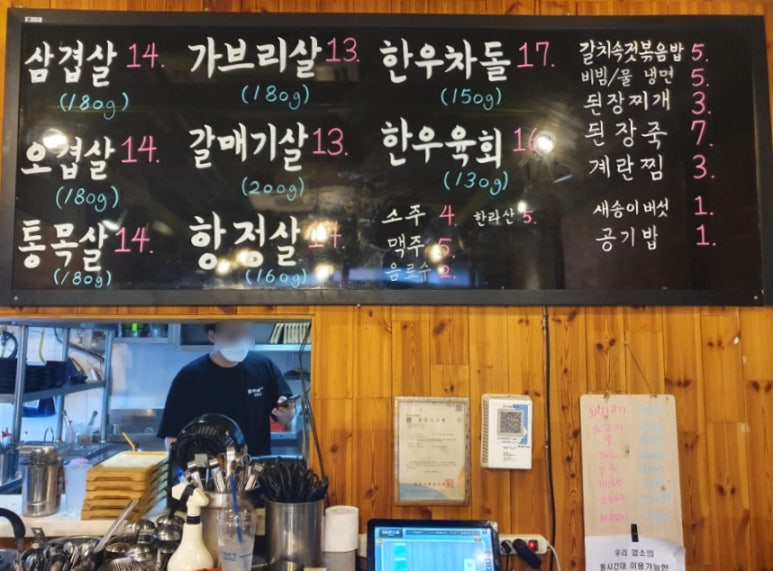 삼겹살 14.
(180g)
오겹살 14.
(180g)
통목살 14.
(180g)
가브리살 13.
(180g)
갈매기살 13.
(200g)
항정살 14.
(160g)
한우차돌 17.
(150g)
한우육회 16.
(130g)
소주 4. 한라산 5.
맥주 5.
음료수 2.
갈치속젓볶음밥 5.
비빔/물 냉면 5.
된장찌개 3.
된장죽 7.
계란찜 3.
새송이버섯 1.
공기밥 1.
돼지고기
소고기
우리 업소의
동시간대 이용가능한